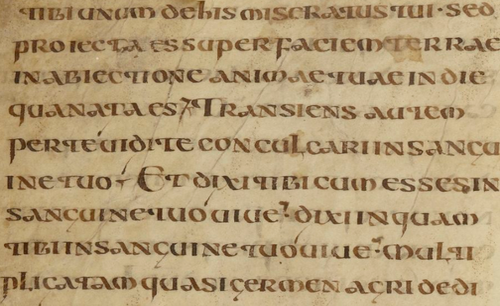 tibi unum de his miseratus tui · sed
proiecta es super faciem terrae
in abiectione animae tuae in die
qua nata es · Transiens autem
per te uidi te conculcari in sangu
ine tuo · Et dixi tibi cum esses in
sanguine tuo uiue · dixi inquam
tibi in sanguine tuo uiue · multi
plicatam quasi germen agri dedi